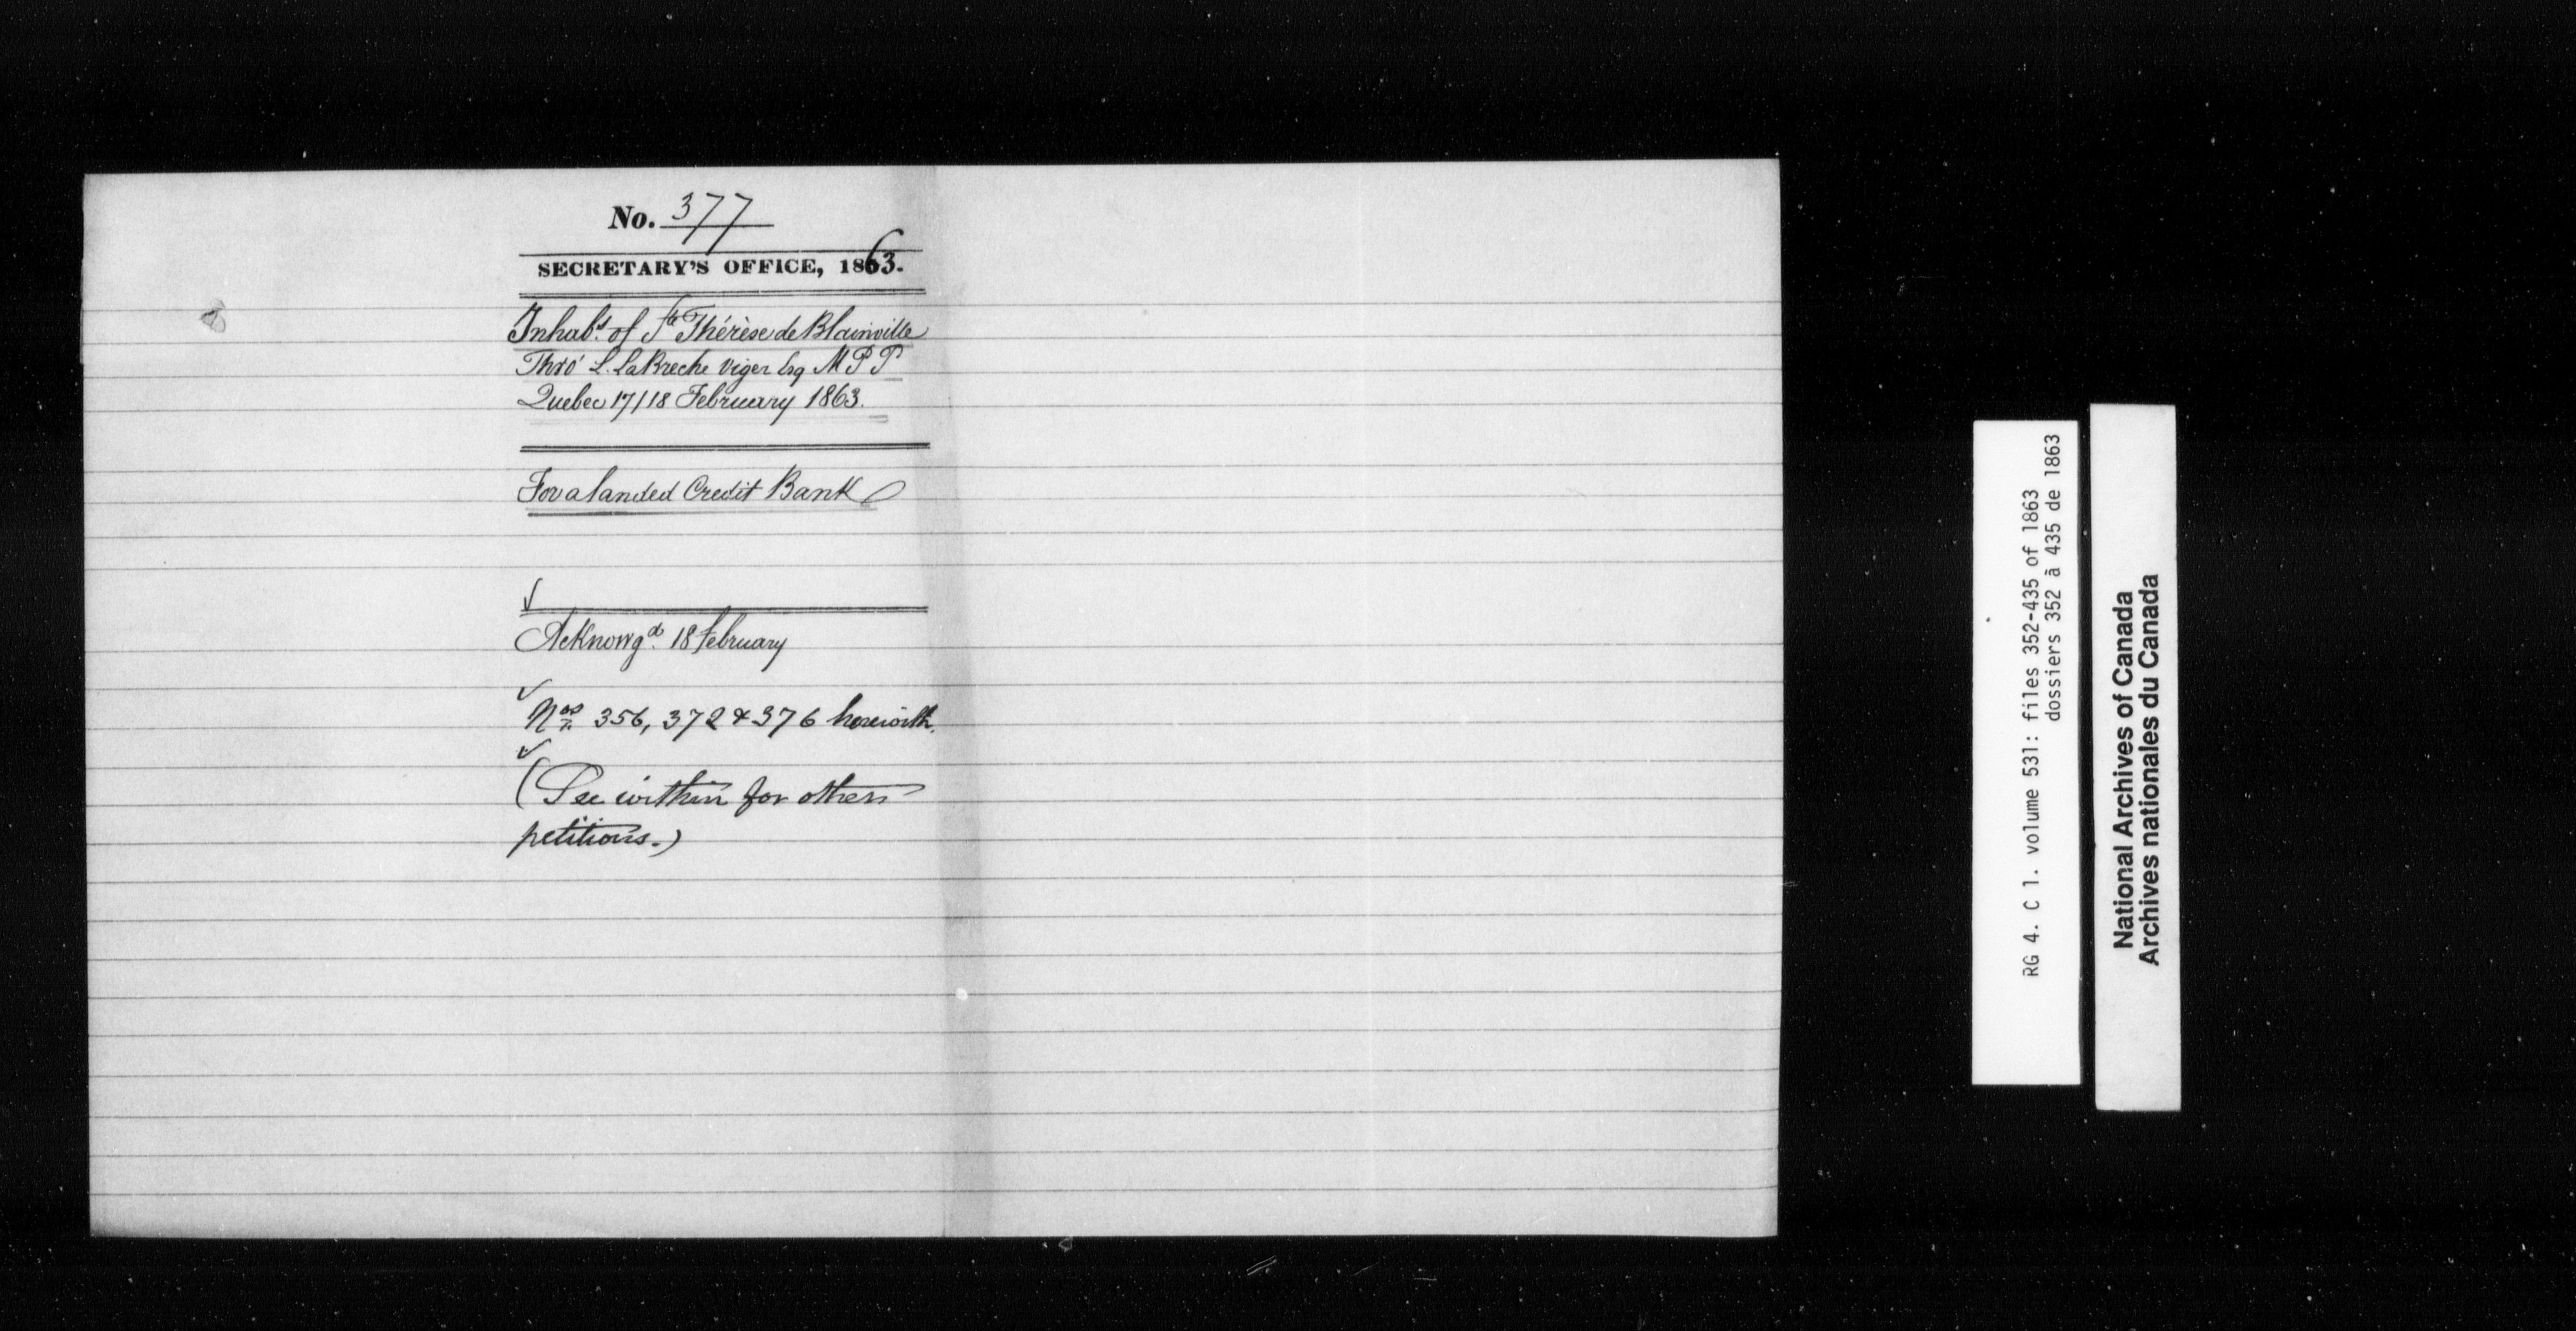 No. 377
SECRETARY'S OFFICE, 1863.
Inhabts. of Ste Thérèse de Blainville
Thro' L. LaBreche Viger Esq M P P
Quebec 17/18 February 1863.
For a landed Credit Bank
Acknowgd. 18 February
Nos. 356, 372 & 376 herewith.
(See within for other
petitions.)
RG 4. C 1. volume 531: files 352-435 of 1863
dossiers 352 à 435 de 1863
National Archives of Canada
Archives nationales du Canada